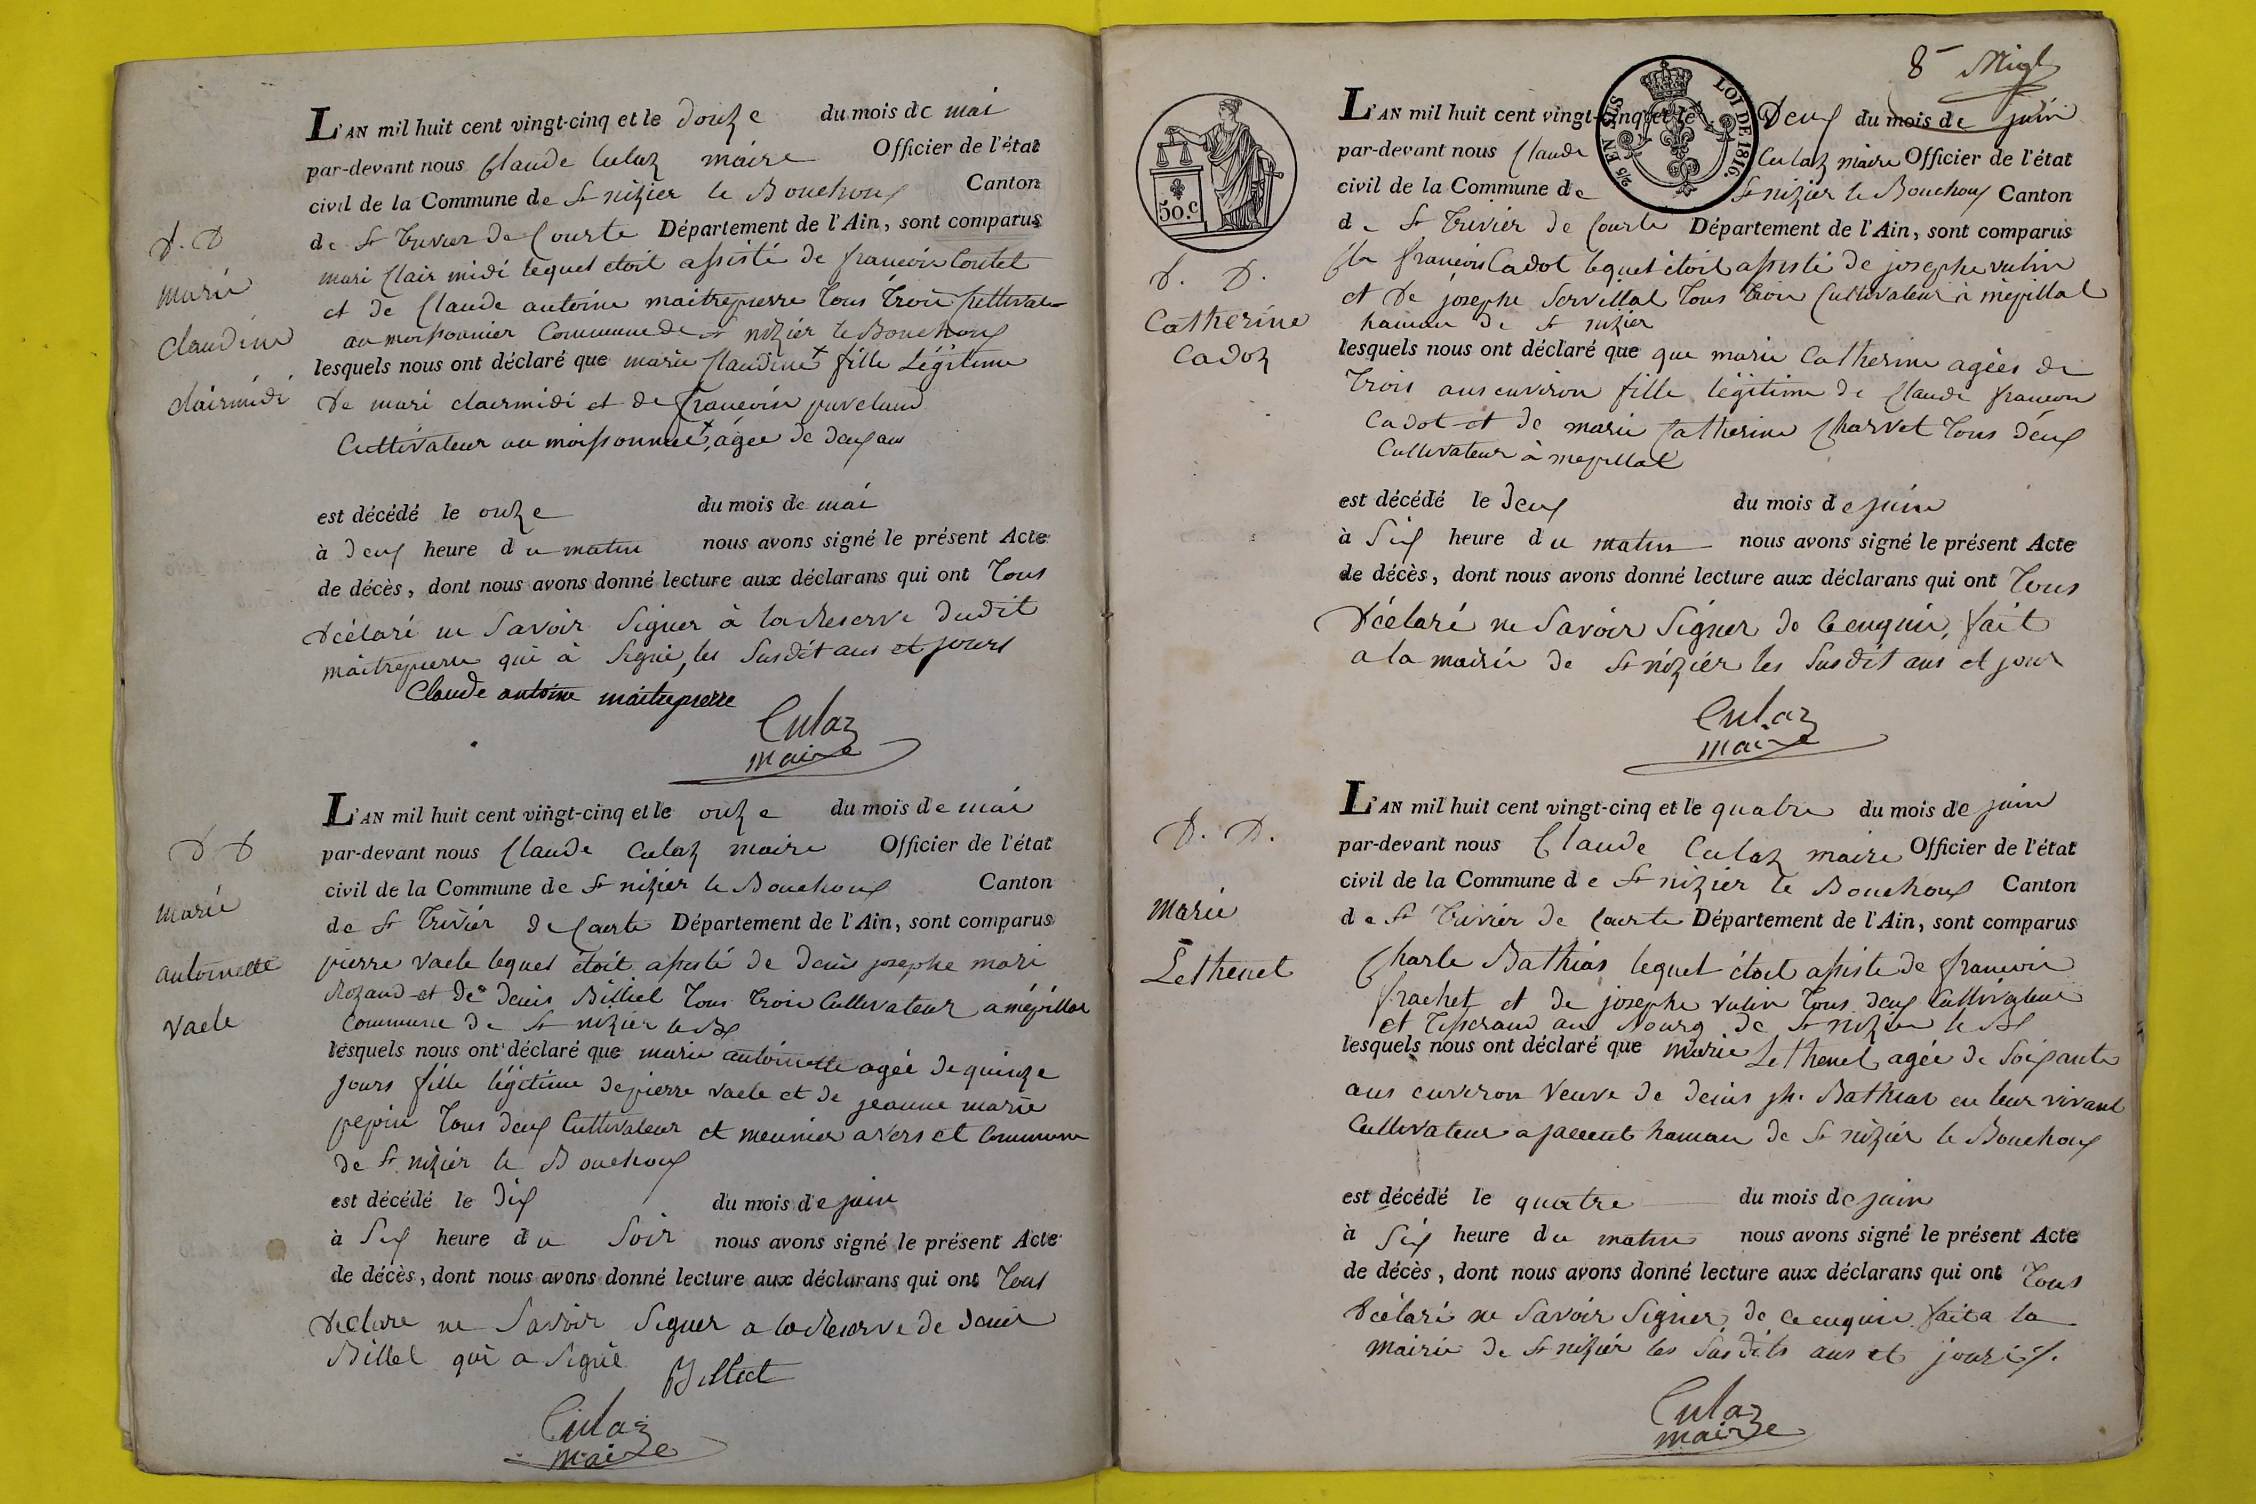 L'AN mil huit cent vingt-cinq et le douze du mois de mai
par-devant nous Claude Culaz maire Officier de l'état
civil de la Commune de St nizier le Bouchoux Canton
de St Trivier de Courte Département de l'Ain, sont comparus
mari Clair midi lequel étoit assisté de francois Coutet
et de Claude antoine maitrepierre tous trois Cultivateur
au moissonnier Commune de St nizier le Bouchoux
lesquels nous ont déclaré que marie Claudine + fille Légitime
de mari clairmidi et de francoise
Cultivateur au moissonnier + agee de deux ans
est décédé le onze du mois de mai
à deux heure du matin nous avons signé le présent Acte
de décès, dont nous avons donné lecture aux déclarans qui ont tous
déclaré ne Savoir Signer à la Reserve dudit
maitrepierre qui à Signé, les Susdit ans et jours
Claude antoine maitrepierre
Culaz
maire
D. D
marie
claudine
clairmidi
L'AN mil huit cent vingt-cinq et le onze du mois de mai
par-devant nous Claude Culaz maire Officier de l'état
civil de la Commune de St nizier le Bouchoux Canton
de St Trivier de Courte Département de l'Ain, sont comparus
pierre vaele lequel étoit assisté de denis josephe mari
Rozand et de denis Billiet tous trois Cultivateur a mépillat
Commune de St nizier le Bx
lesquels nous ont déclaré que marie antoinette agée de quinze
jours fille légitime de pierre vaele et de jeanne marie
pepin tous deux Cultivateur et meunier a vers et Commune
de St nizier le Bouchoux
est décédé le dix du mois de juin
à Six heure du Soir nous avons signé le présent Acte
de décès, dont nous avons donné lecture aux déclarans qui ont tous
declare ne Savoir Signer a la Reserve de denis
Billet qui a Signé
Billiet
Culaz
maire
D D
marie
antoinette
vaele
8
LOI DE 1816.
50.c
L'AN mil huit cent vingt-cinq et le Deux du mois de juin
par-devant nous Claude Culaz maire Officier de l'état
civil de la Commune de St nizier le Bouchoux Canton
de St Trivier de Courte Département de l'Ain, sont comparus
francois Cadot lequel étoit assisté de josephe vulin
et de josephe Servillat tous trois Cultivateur à mépillat
hamau de St nizier
lesquels nous ont déclaré que que marie Catherine agées de
trois ans environ fille légitime de Claude francois
Cadot et de marie Catherine Charvet tous deux
Cultivateur à mepillat
est décédé le deux du mois de juin
à Six heure du matin nous avons signé le présent Acte
de décès, dont nous avons donné lecture aux déclarans qui ont tous
déclaré ne Savoir Signer de Cenquis, fait
a la mairie de St nizier les Susdit ans et jour
Culaz
maire
D. D.
Catherine
Cadoz
L'AN mil huit cent vingt-cinq et le quatre du mois de juin
par-devant nous Claude Culaz maire Officier de l'état
civil de la Commune de St nizier le Bouchoux Canton
de St Trivier de Courte Département de l'Ain, sont comparus
Charle Bathias lequel étoit assisté de francois
frachet et de josephe vulin tous deux Cultivateur
et tisserand au Bourg de St nizier le Bx
lesquels nous ont déclaré que marie Lethenet agée de Soixante
ans environ Veuve de denis jh. Bathias en leur vivant
Cultivateur a hamau de St nizier le Bouchoux
est décédé le quatre du mois de juin
à Six heure du matin nous avons signé le présent Acte
de décès, dont nous avons donné lecture aux déclarans qui ont tous
déclaré ne Savoir Signer de cenquis fait a la
mairie de St nizier les Susdits ans et jour
Culaz
maire
D. D.
marie
Lethenet